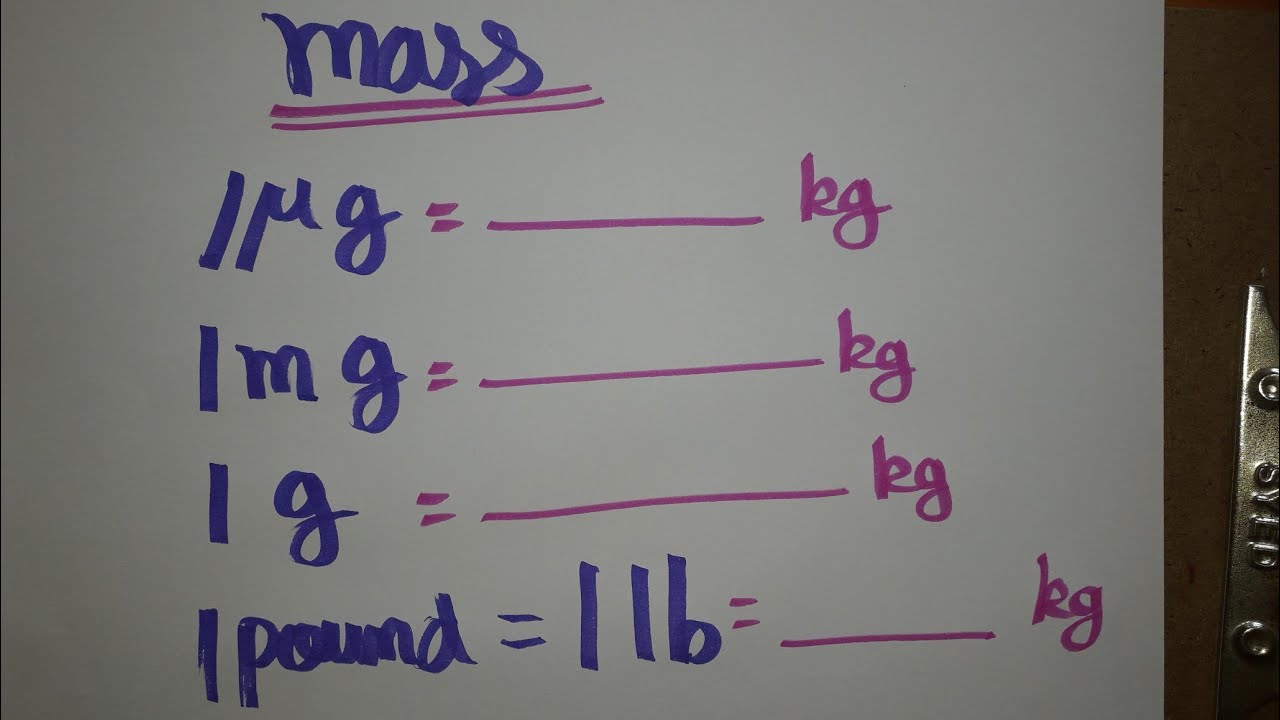 mass
1 μg = ________ kg
1 mg = ________ kg
1 g = ________ kg
1 pound = 1 lb = ________ kg